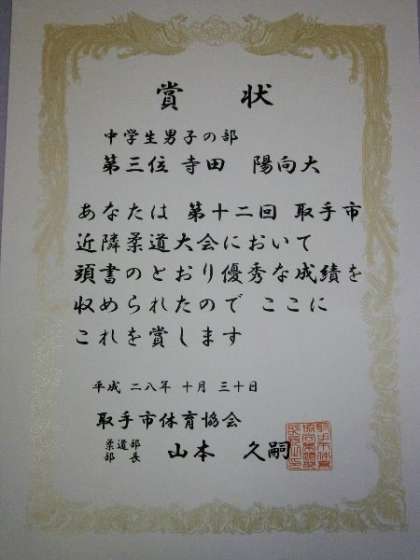 賞 状
中学生男子の部
第三位 寺田 陽向大
あなたは 第十二回 取手市
近隣柔道大会において
頭書のとおり優秀な成績を
収められたので ここに
これを賞します
平成 二八年 十月 三十日
取手市体育協会
柔道部
部長 山本 久嗣